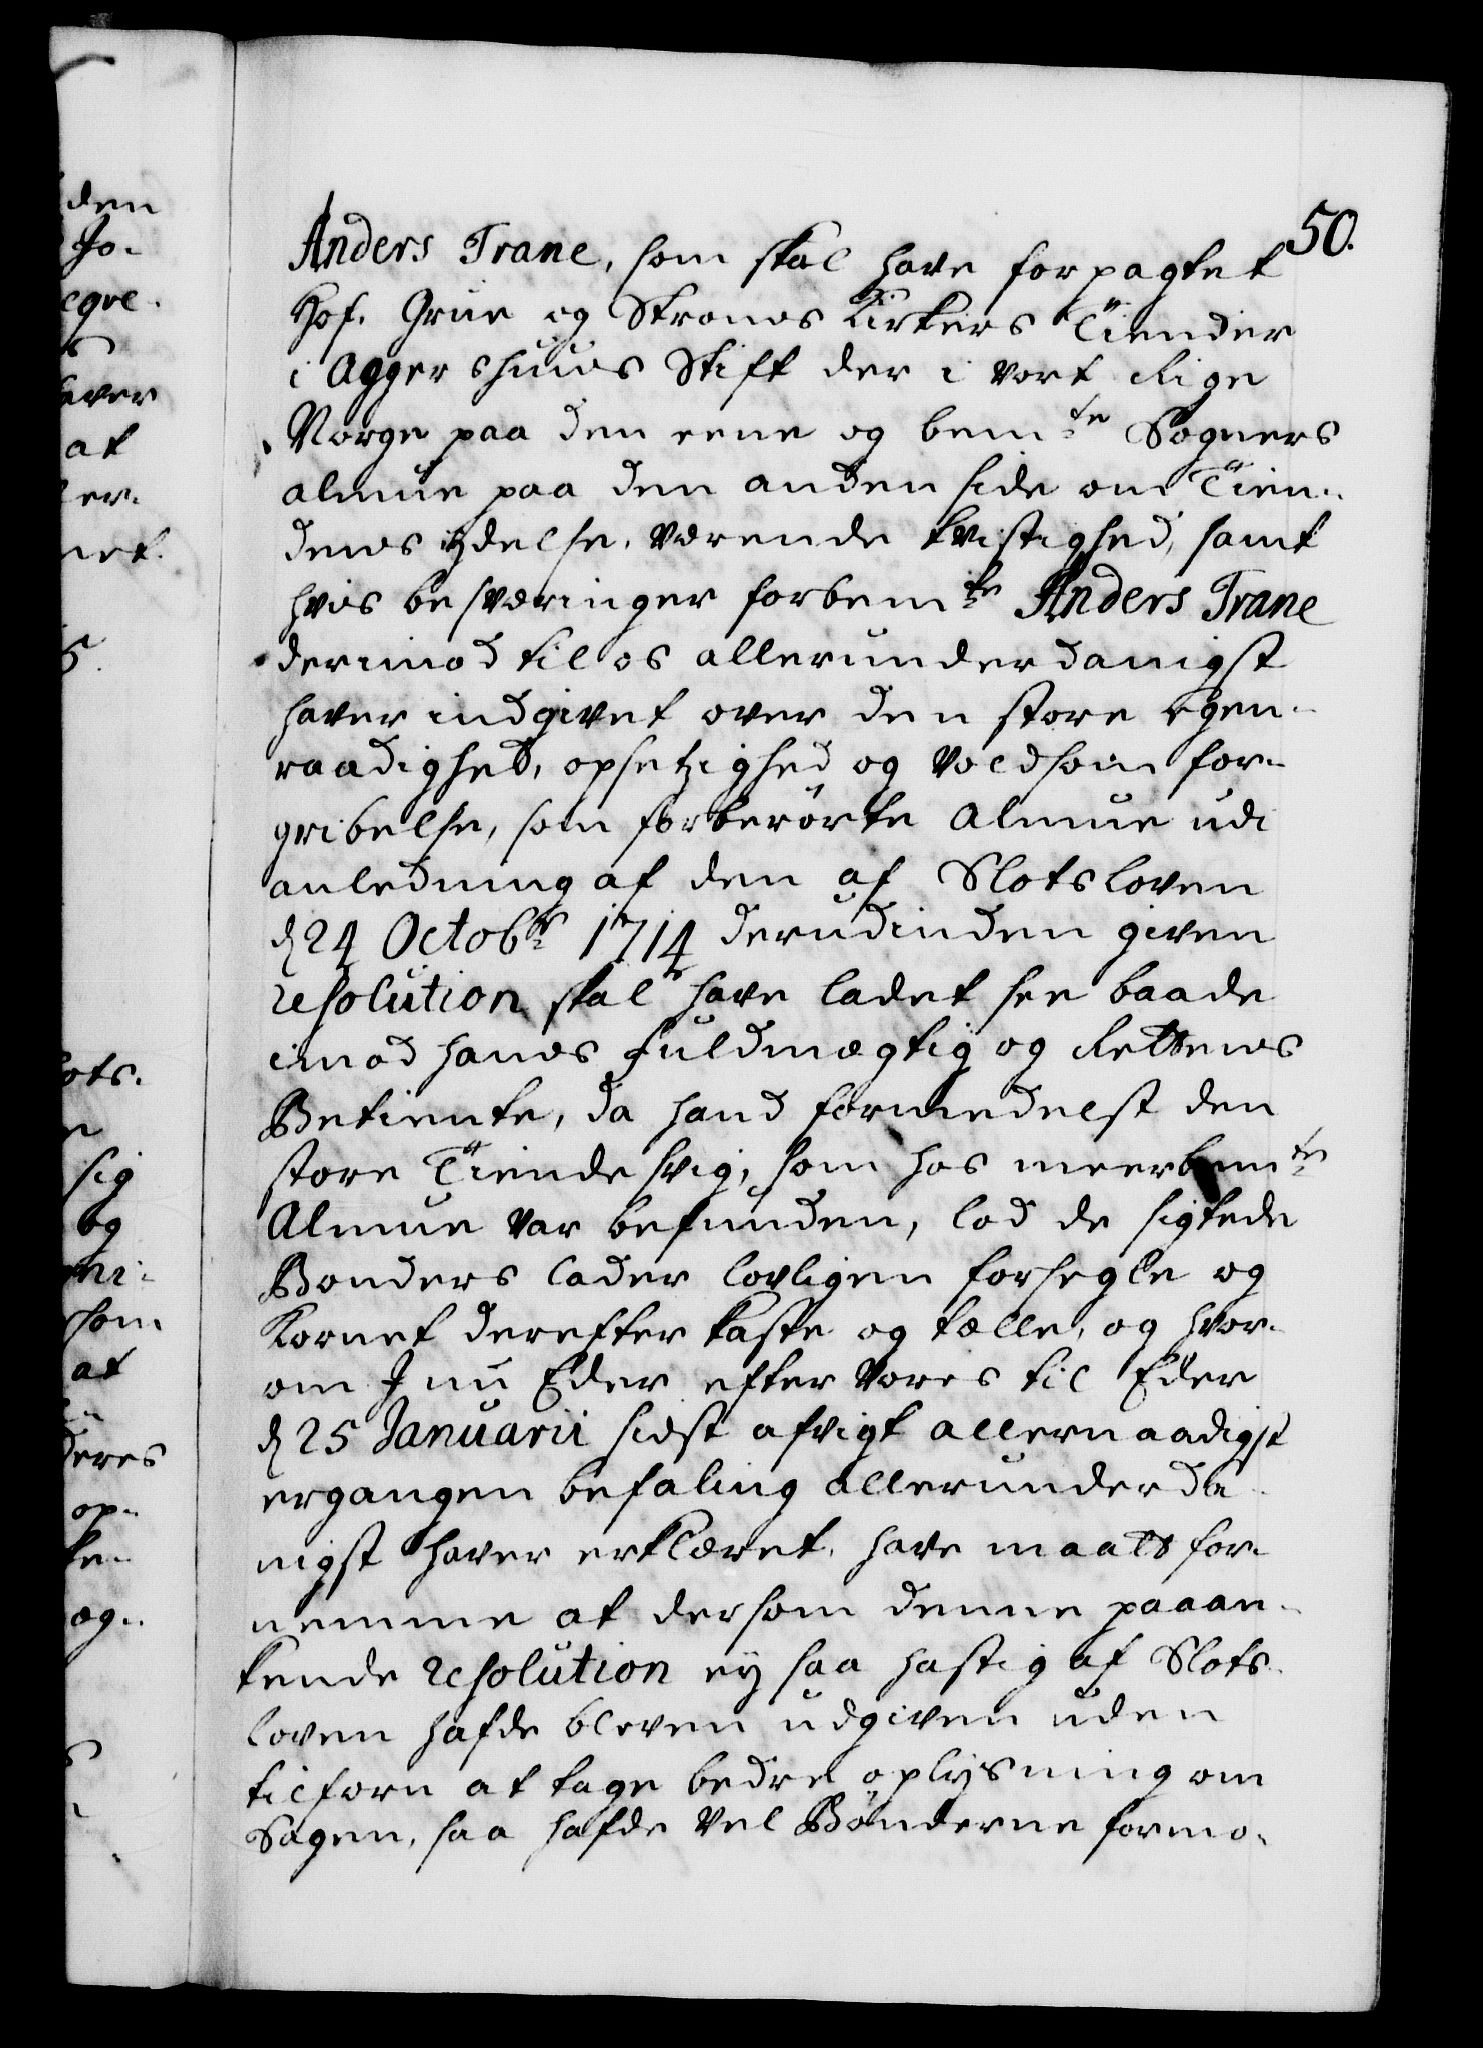 50.
Anders Trane, som skal have forpagtet
Hof, Grue og Strands Kirkers Tiender
i Aggershuus Stift der i vort Rige
Norge paa den eene og bem.te Sogners
almue paa den anden side om Tien-
dens ydelse, værende tvistighed, samt
hvis besværinger forbem.te Anders Trane
derimod til os allerunderdanigst
haver indgivet over den store egen-
raadighed, opsetzighed og voldsom for-
gribelse, som forberörte Almue udi
anledning af den af Slotsloven
d. 24 Octobr. 1714 derudinden given
resolution skal have ladet see baade
imod hans Fuldmægtig og Rettens
Betiente, da hand formedelst den
store Tiende svig, som hos meerbem.te
Almue var befunden, lod de sigtede
Bonders lader lovligen forsegle og
Kornet derefter kaste og tælle, og hvor-
om I nu Eder efter Vores til Eder
d. 25 Januarii sidst afvigt allernaadigst
ergangen befaling allerunderda-
nigst haver erklæret, have maatt for-
nemme at dersom denne paaan-
kende resolution ey saa hastig af Slots-
loven hafde bleven udgiven uden
tilforn at tage bedre oplysning om
Sagen, saa hafde vel Bönderne formo-
den
Jo-
egre-
s
aver
at
er-
net.
5.
ots-
e
sig
og
ni-
som
at
deres
op-
ke-
æg-